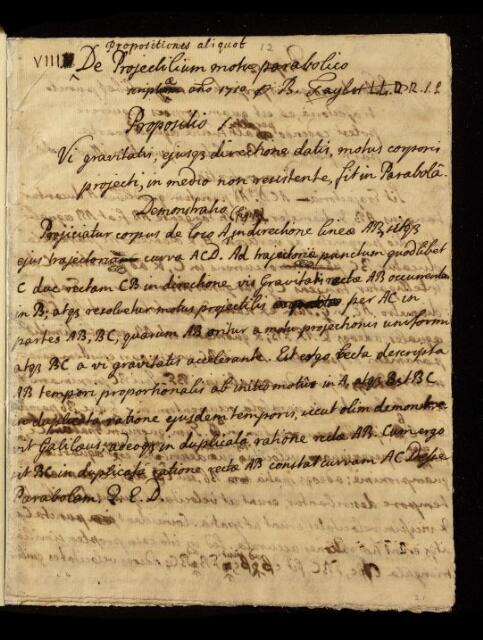 Propositiones aliquot
VIII De Projectilium motu parabolico 12
scriptæ año 1710. p B. Taylor LL.D. R.S.S.
Propositio 1.
Vi gravitatis, ejusq3 directione datis, motus corporis
projecti, in medio non resistente, fit in Parabolâ.
Demonstratio (fig. 1)
Projiciatur corpus de loco A, in directione lineæ AB, sitq3
ejus trajectoria curva ACD. Ad trajectoriæ punctum quodlibet
C duc rectam CB in directione vis Gravitatis rectæ AB occurrentem
in B; atq3 resolvetur motus projectilis per AC in
partes AB, BC, quarum AB oritur a motu projectionis uniformi
atq3 BC a vi gravitatis accelerante. Est ergo recta descripta
AB tempori proportionalis ab initio motus in A, atq3 est BC
in duplicata ratione ejusdem temporis, sicut olim demonstra-
vit Galilæus, adeoq3 in duplicata ratione rectæ AB. Cum ergo
sit BC in duplicata ratione rectæ AB constat curvam AC esse
Parabolam. Q. E. D.